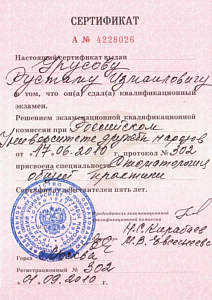 СЕРТИФИКАТ
А № 4228026
Настоящий сертификат выдан
Урусову
Рустаму Исмаиловичу
в том, что он(а) сдал(а) квалификационный
экзамен.
Решением экзаменационной квалификационной
комиссии при Российском
Университете дружбы народов
от 17.06.2010 г., протокол № 302
присвоена специальность Стоматология
общей практики
Сертификат действителен пять лет.
Н.С. Карабаев
М.В. Евсенеева
Город Москва
Регистрационный № 302
01.09.2010 г.